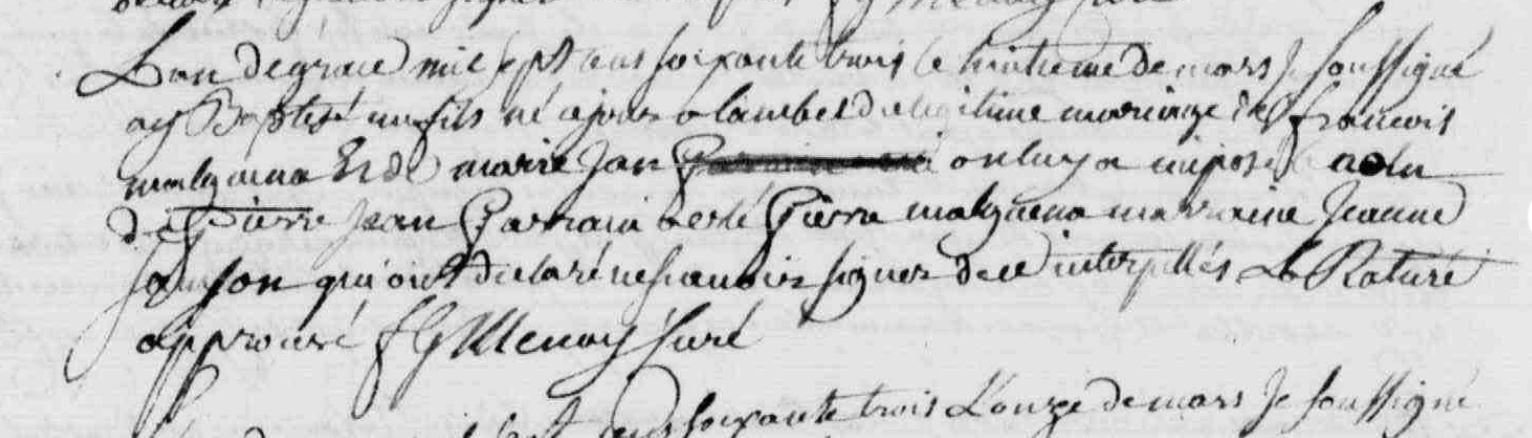 L'an de grace mil sept cens soixante trois le huitieme de mars Je soussigné
ay Baptisé un fils né ce jour a lambes de legitime mariage de francois
malguena Et de marie Jan Parrain a esté on luy a imposé le nom
de Pierre Jean Parrain a esté Pierre malguena marraine Jeanne
qui ont declaré ne scavoir signer de ce interpellés Le Raturé
approuvé curé
cens soixante trois L'onze de mars Je soussigné